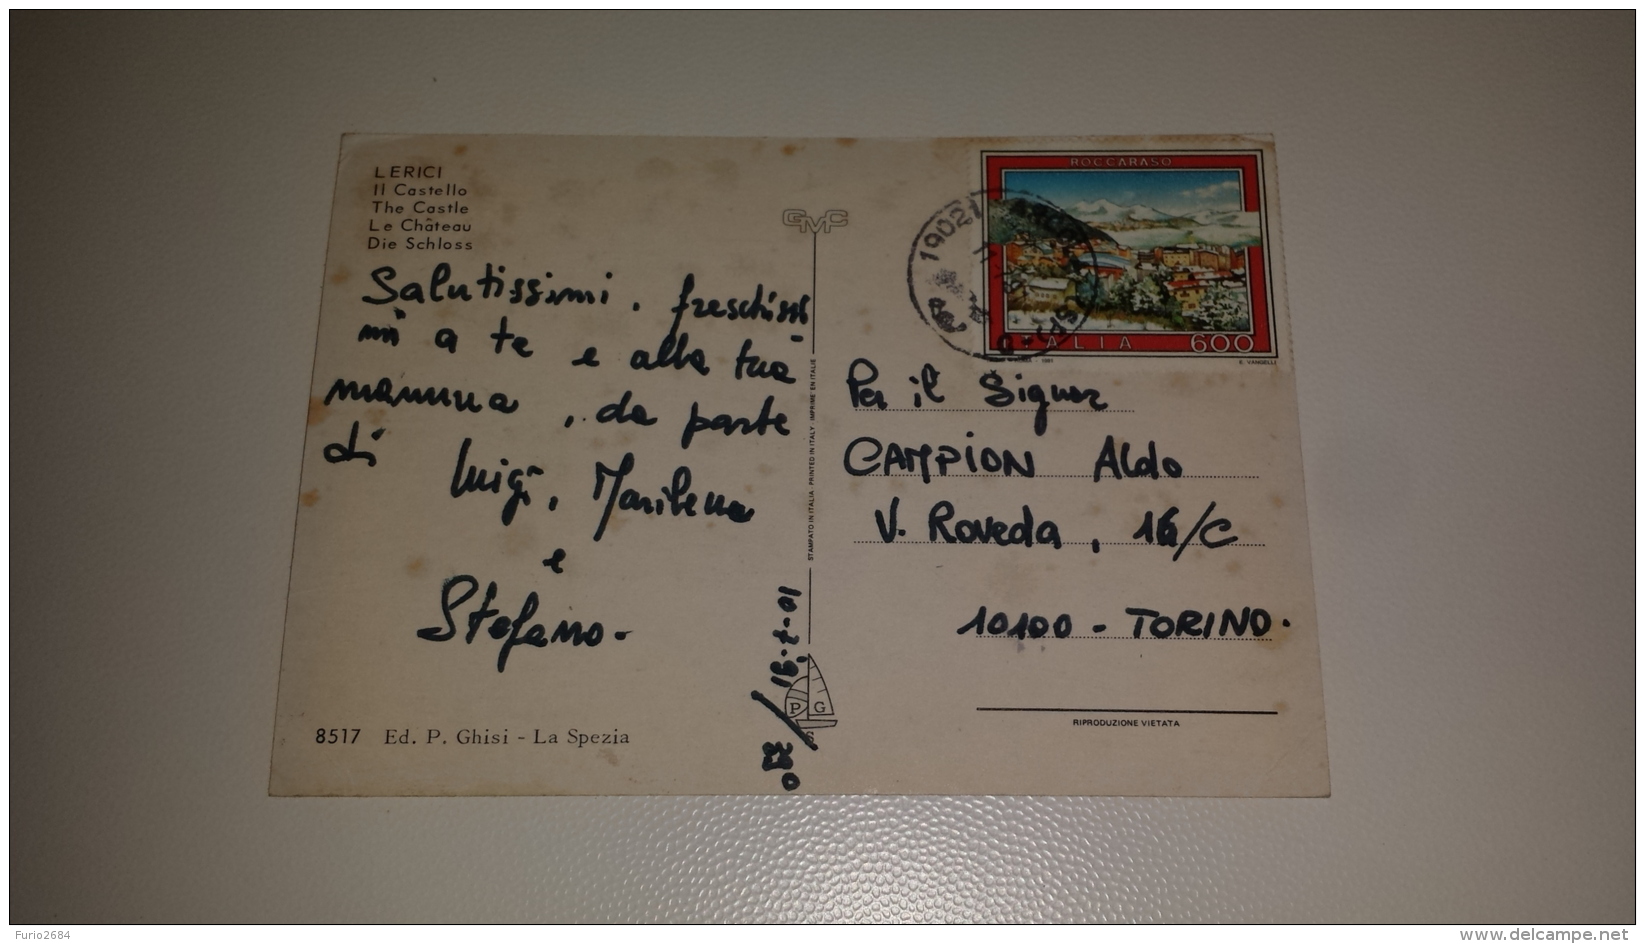 LERICI
Il Castello
The Castle
Le Château
Die Schloss
GMC
Salutissimi, freschissi
mi a te e alla tua
mamma, da parte
di Luigi, Marilena
e
Stefano.
8517 Ed. P. Ghisi - La Spezia
STAMPATO IN ITALIA - PRINTED IN ITALY - IMPRIME EN ITALIE
10-7-91
P G
ROCCARASO
ITALIA 600
1991
E. VANGELLI
19021
Per il Signor
CAMPION Aldo
V. Roveda, 16/C
10100 - TORINO.
RIPRODUZIONE VIETATA
Furio2684
delcampe.net